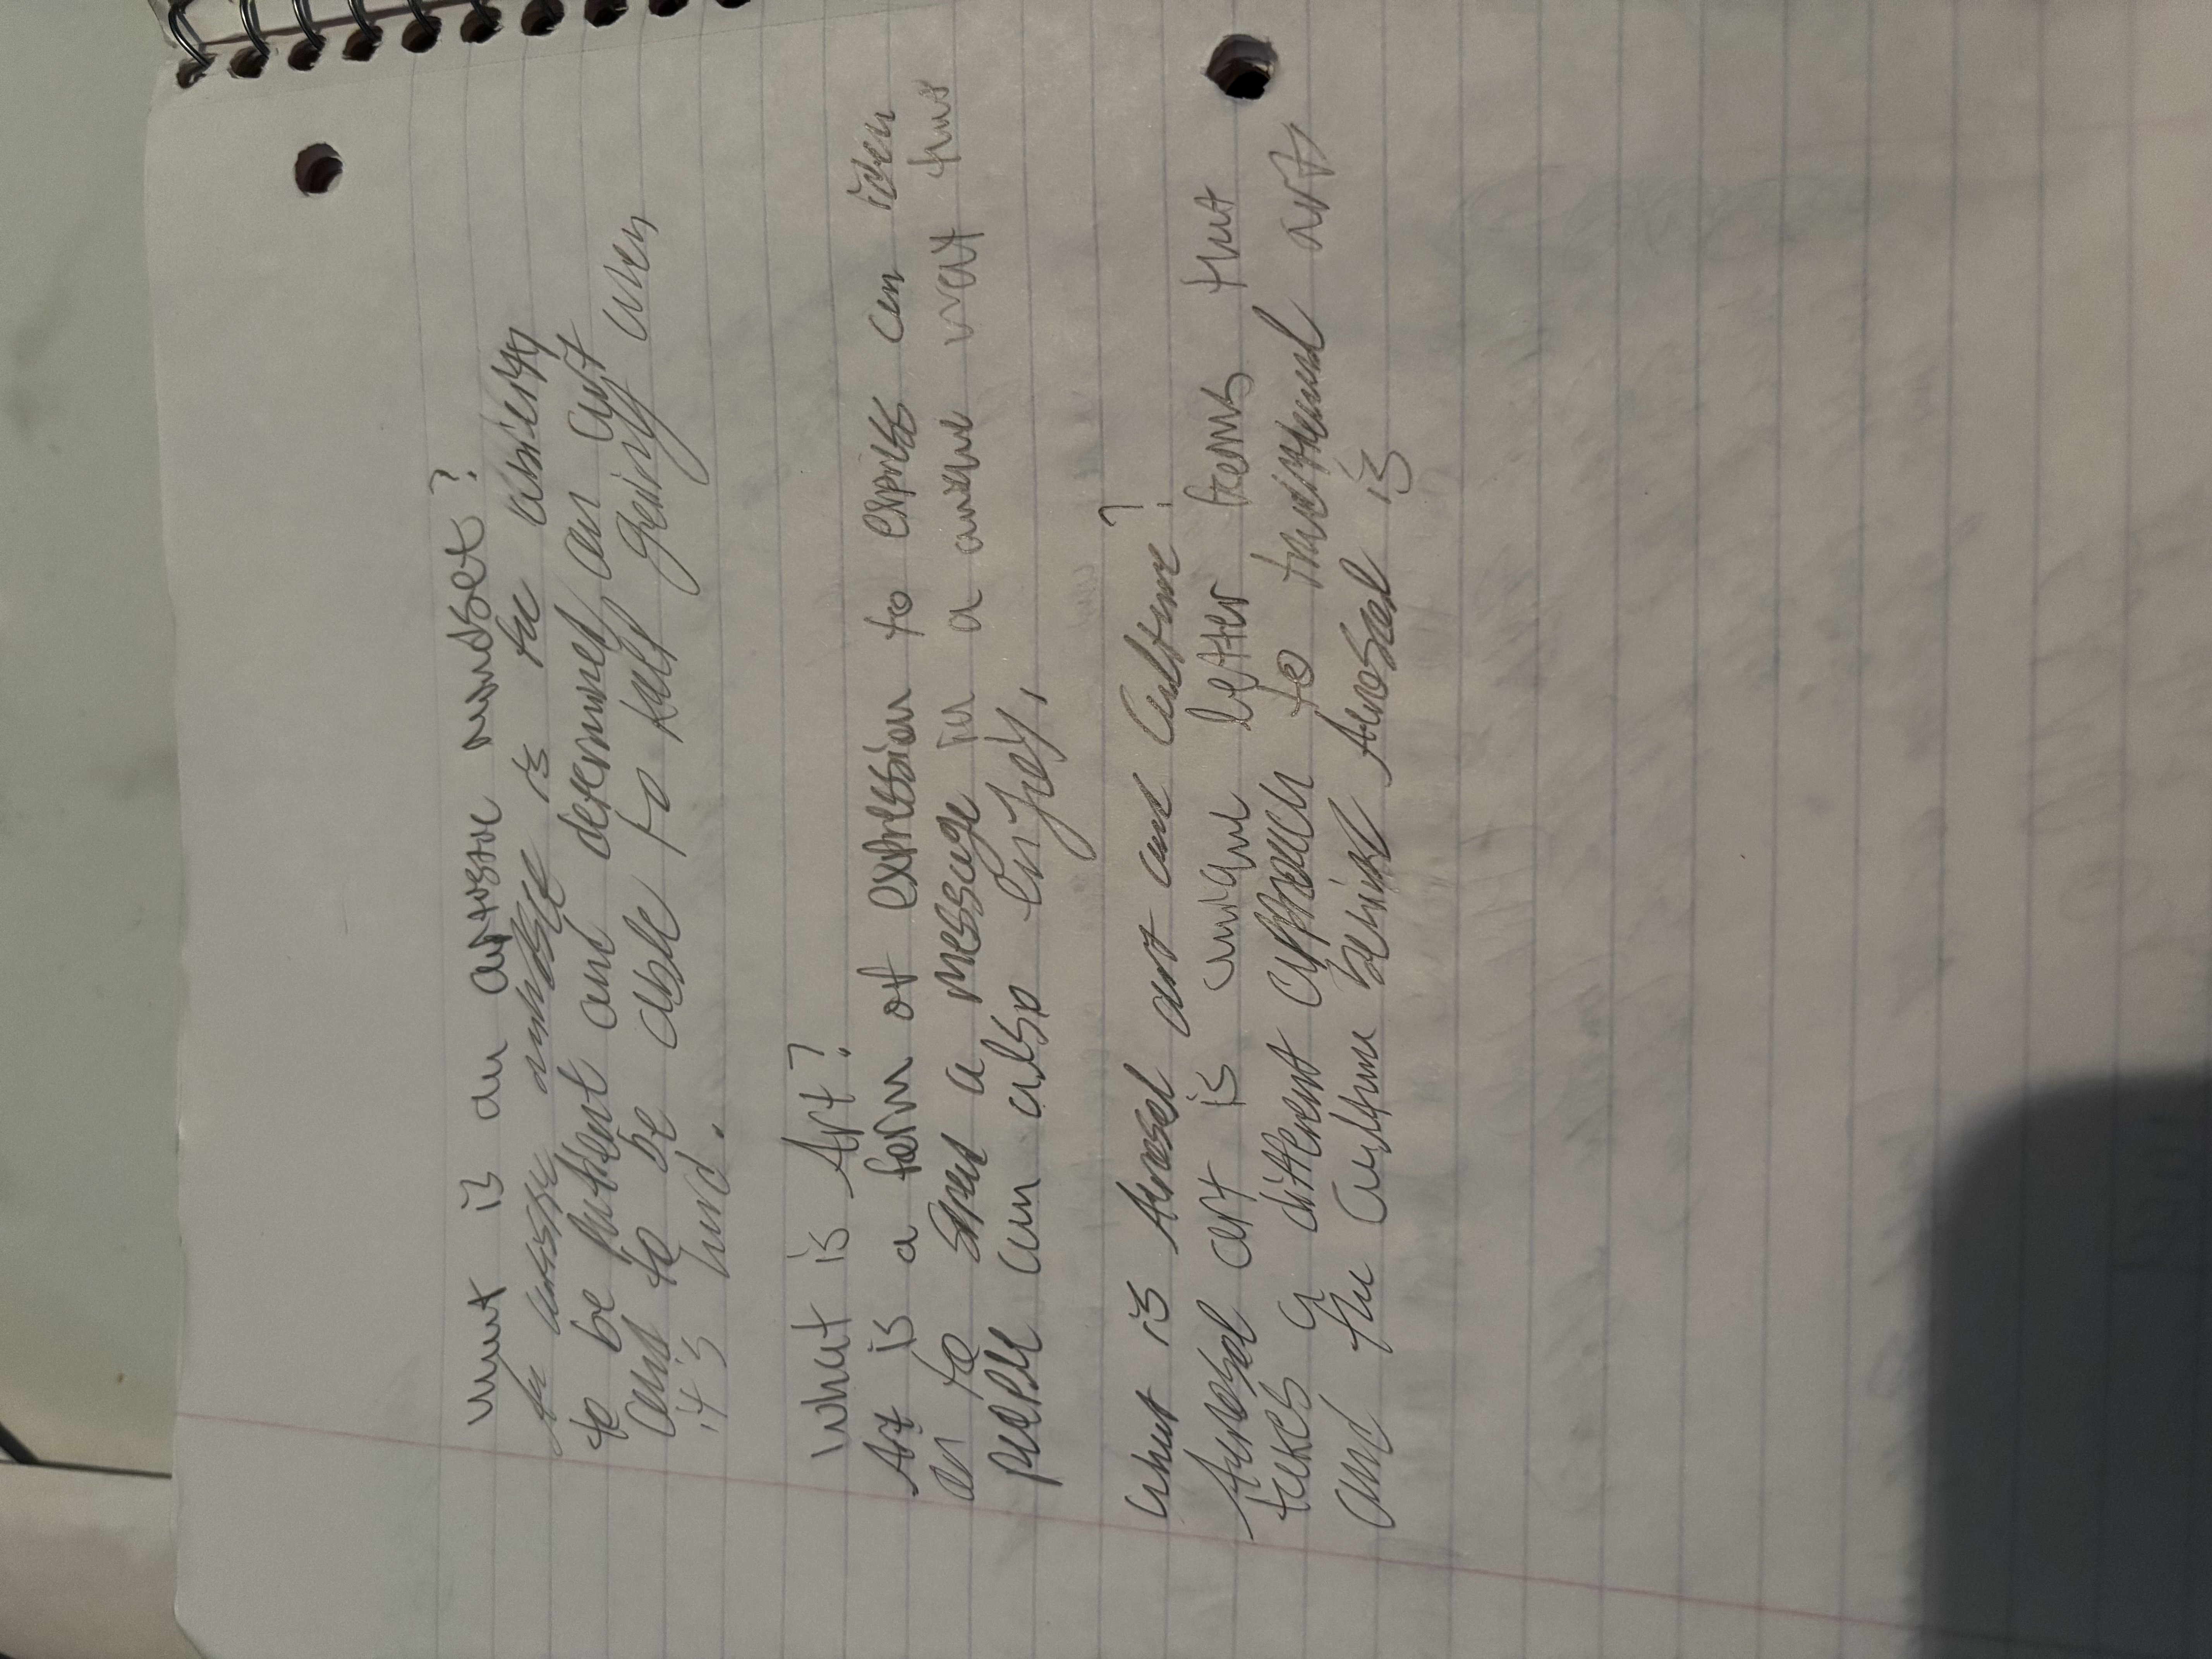 What is an artistic mindset?
An artistic mindset is the ability
to be patient and determined an art
and to be able to kalp going when
it's hard.
What is Art?
Art is a form of expression to express an idea
or to send a message in a way that
people can also enjoy.
What is Aerosol art and Culture?
Aerosol art is unique letter forms that
takes a different approach to traditional art
and the culture behind Aerosol is